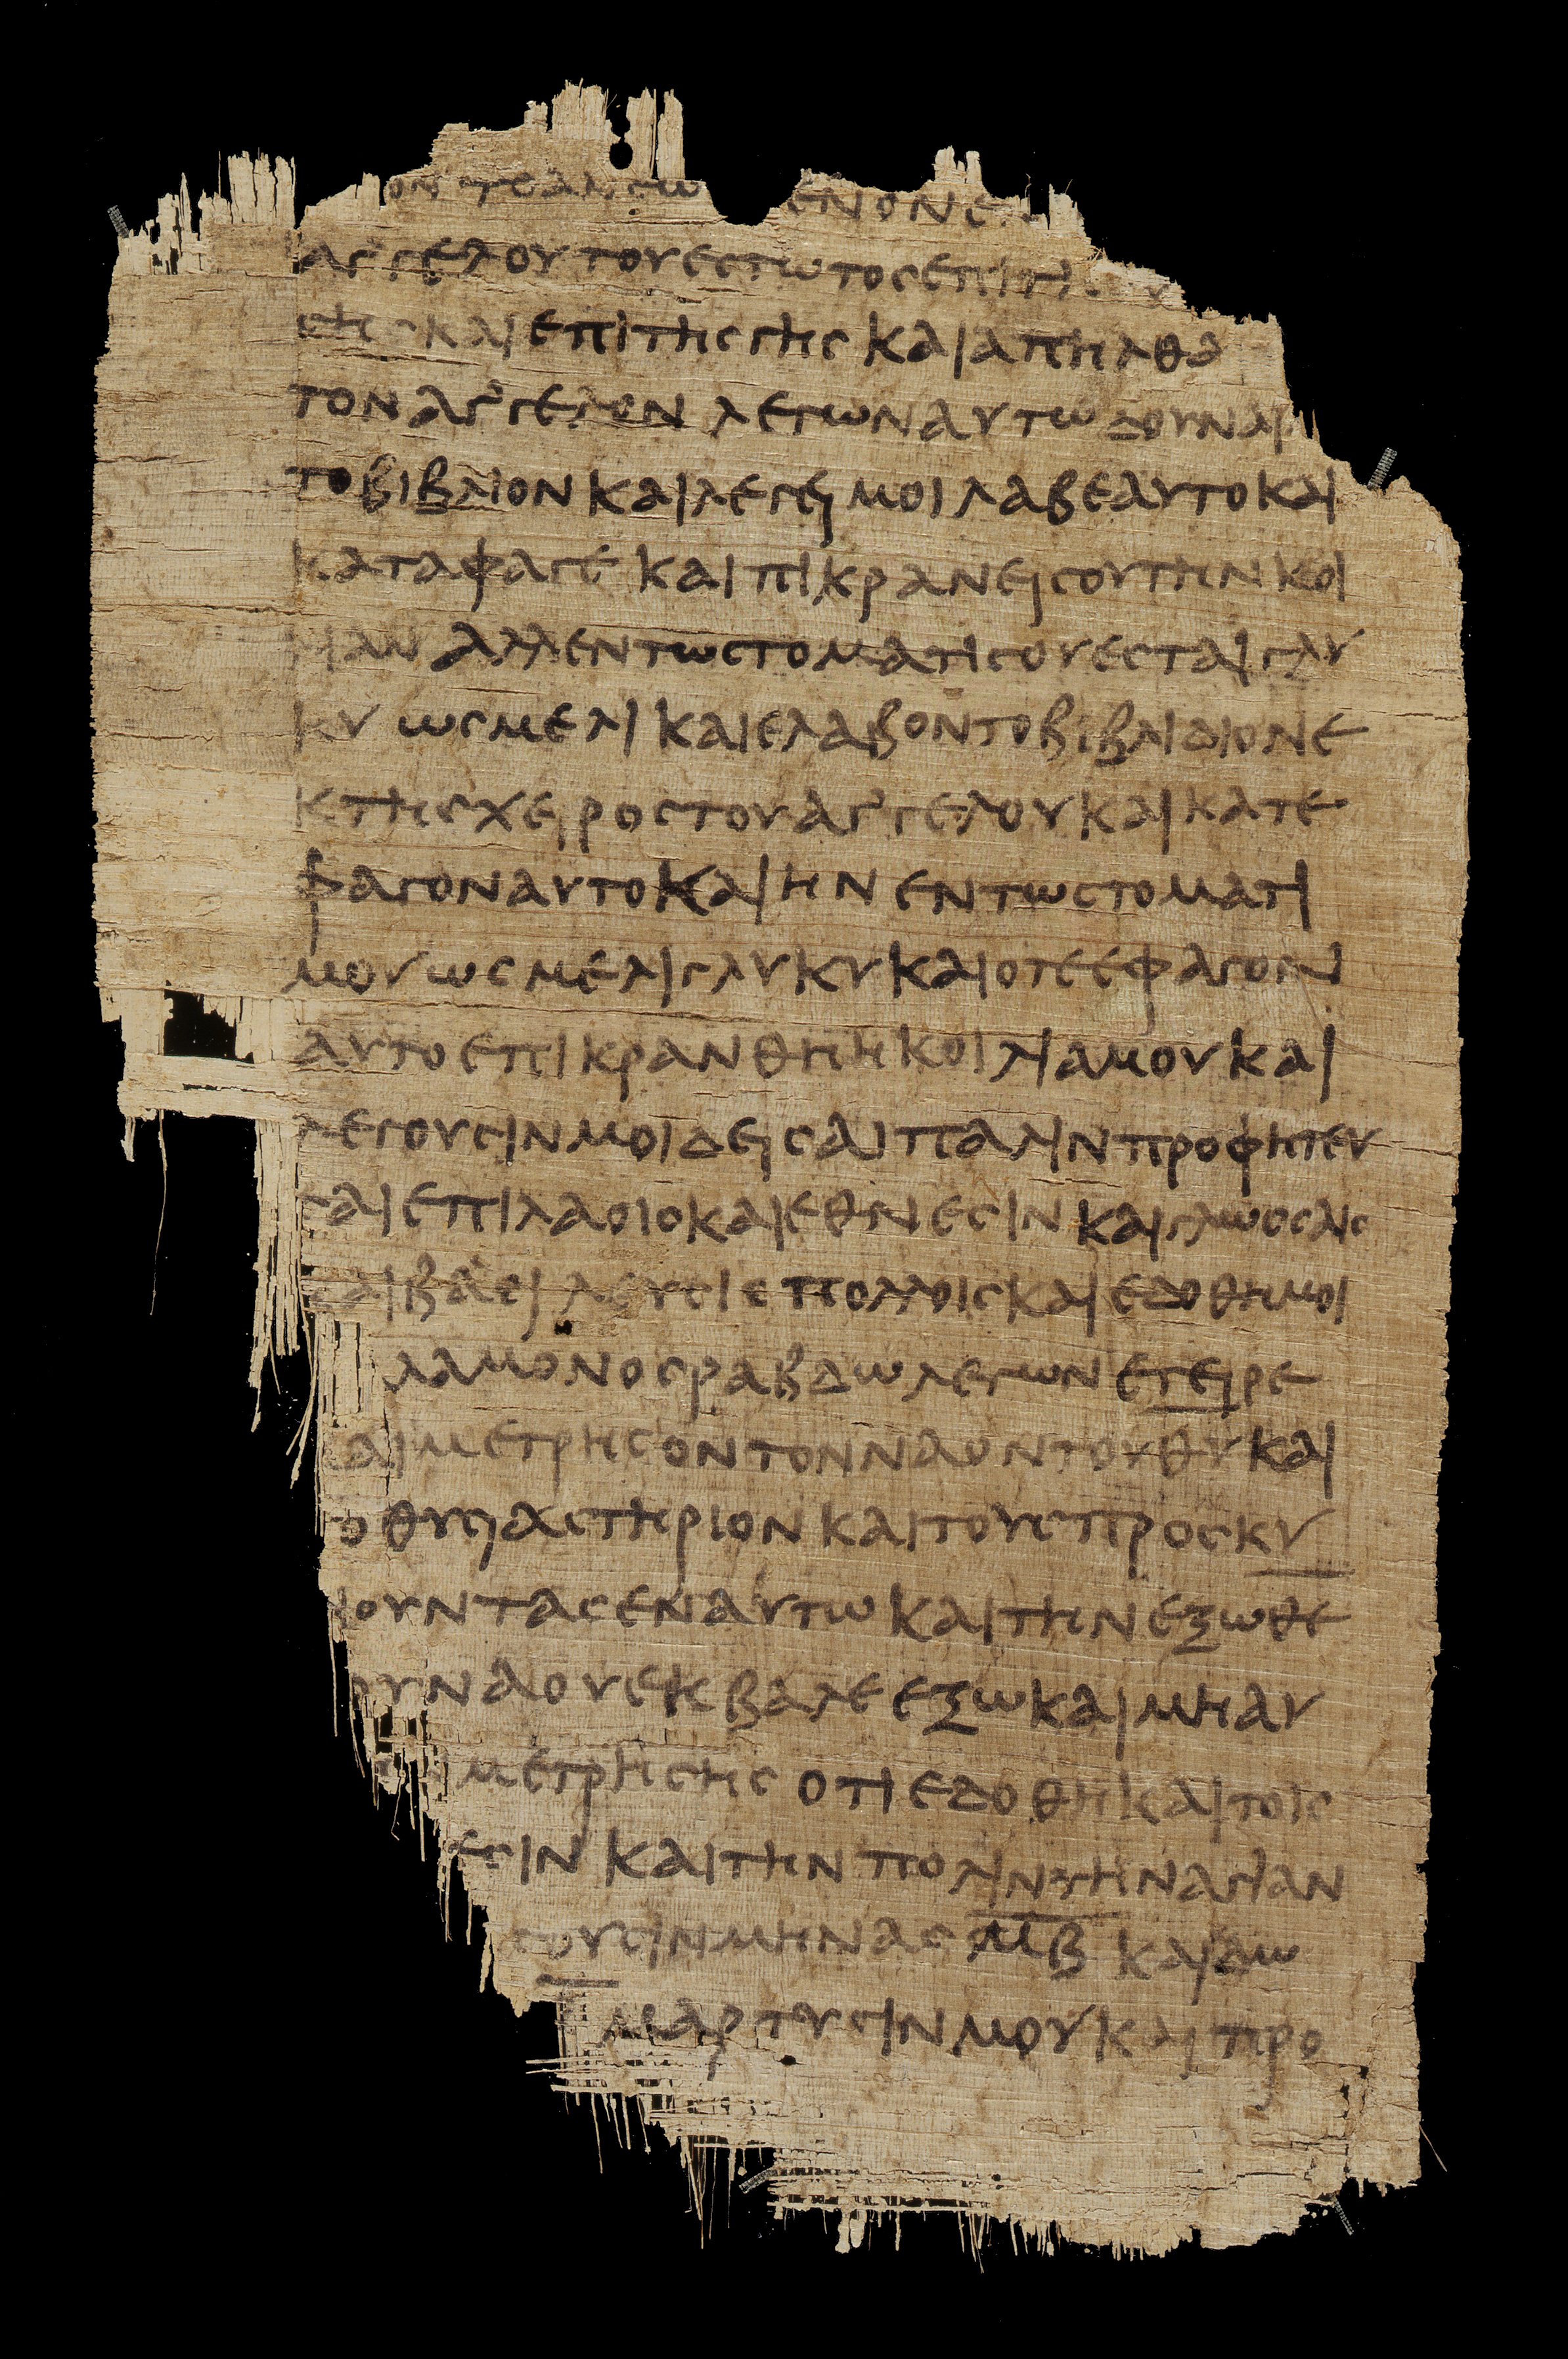 ον το ανεω ενον ε
αγγελου του εστωτος επι της
σης και επι της γης και απηλθα
τον αγγελον λεγων αυτω δουναι
το βιβλιον και λεγει μοι λαβε αυτο και
καταφαγε και πικρανει σου την κοι
λιαν αλλ εν τω στοματι σου εσται γλυ
κυ ως μελι και ελαβον το βιβλιδιον ε
κ της χειρος του αγγελου και κατε
φαγον αυτο και ην εν τω στοματι
μου ως μελι γλυκυ και οτε εφαγον
αυτο επικρανθη η κοιλια μου και
λεγουσιν μοι δει σαι παλιν προφητευ
σαι επι λαοις και εθνεσιν και γλωσσαις
και βασιλευσι πολλοις και εδοθη μοι
λαμονος ραβδω λεγων εγειρε
και μετρησον τον ναον του θυ και
το θυσιαστηριον και τους προσκυ
νουντας εν αυτω και την εξωθε
ου ναου εκβαλε εξω και μη αυ
μετρησης οτι εδοθη και τοις
εσιν και την πολιν την αγιαν
σουσιν μηνας μβ και δω
μαρτυσιν μου και προ